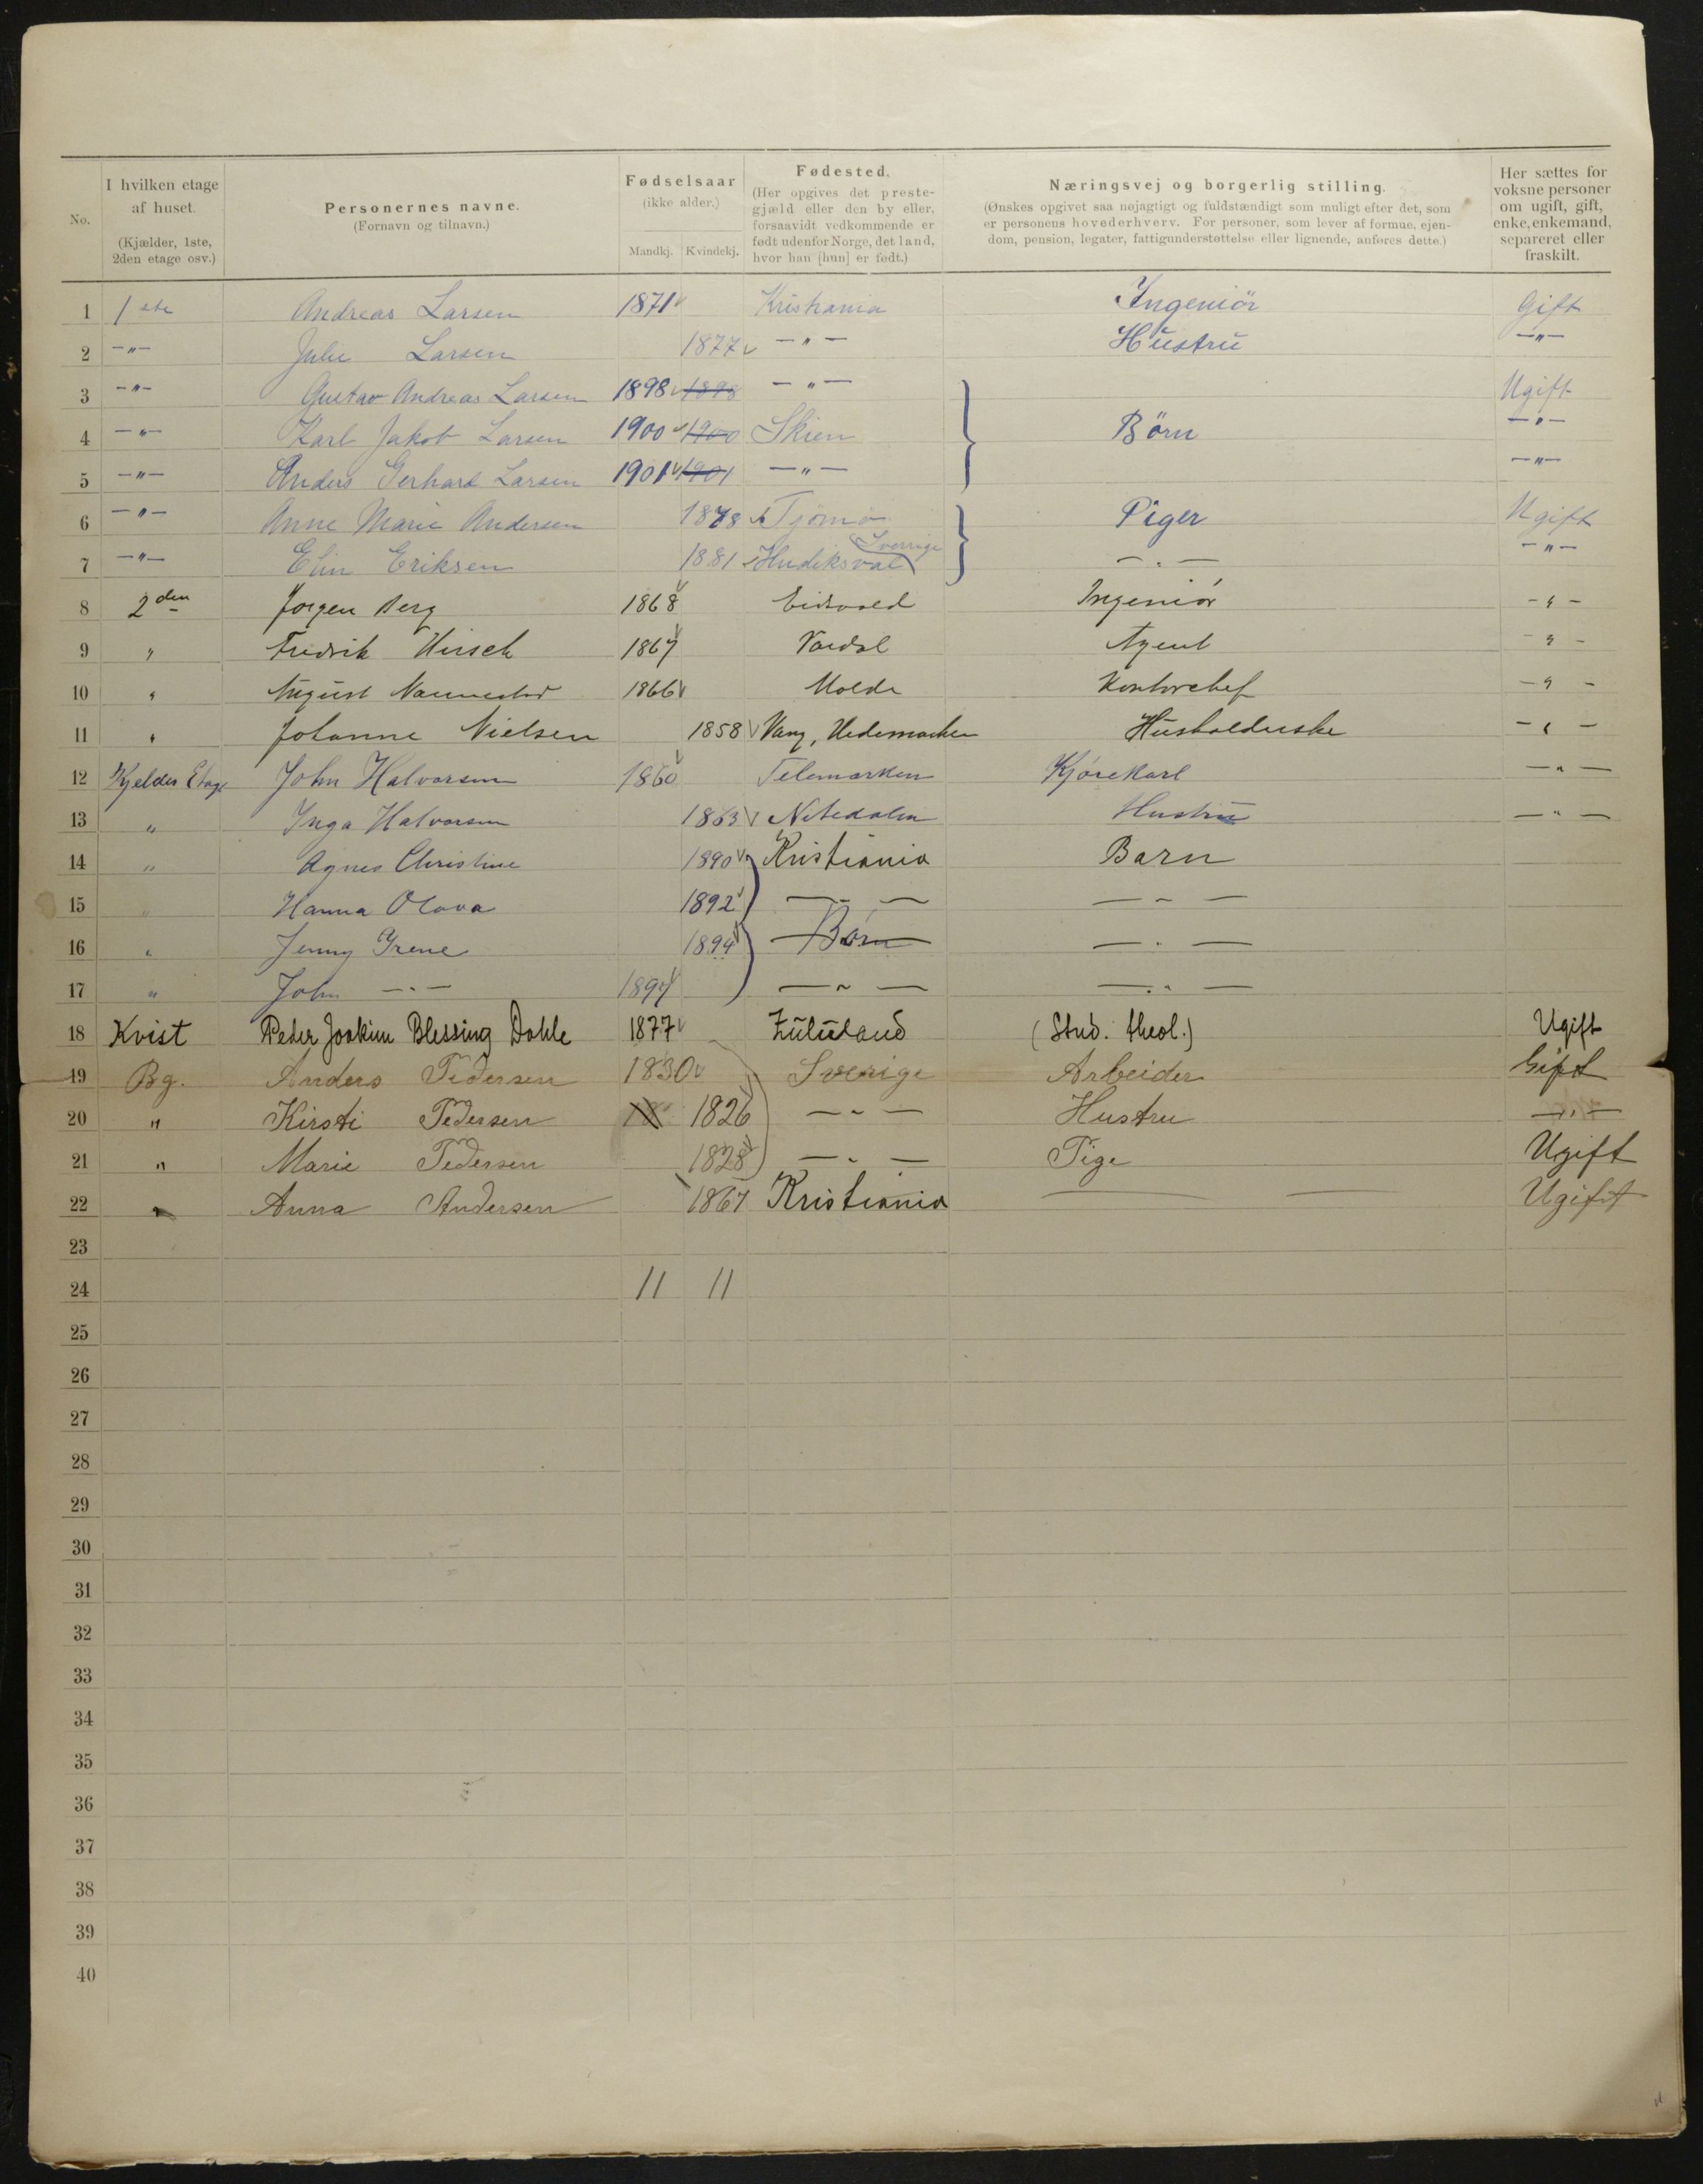 No.
I hvilken etage af huset.
(Kjælder, 1ste, 2den etage osv.)
Personernes navne.
(Fornavn og tilnavn.)
Fødselsaar
(ikke alder.)
Mandkj. Kvindekj.
Fødested.
(Her opgives det preste-
gjæld eller den by eller,
forsaavidt vedkommende er
født udenfor Norge, det land,
hvor han [hun] er født.)
Næringsvej og borgerlig stilling.
(Ønskes opgivet saa nøjagtigt og fuldstændigt som muligt efter det, som
er personens hovederhverv. For personer, som lever af formue, ejen-
dom, pension, legater, fattigunderstøttelse eller lignende, anføres dette.)
Her sættes for
voksne personer
om ugift, gift,
enke, enkemand,
separeret eller
fraskilt.
1 1ste Andreas Larsen 1871 Kristiania Ingeniör Gift
2 —"— Julie Larsen 1877 —"— Hustru —"—
3 —"— Gustav Andreas Larsen 1898 1898 —"— Ugift
4 —"— Karl Jakob Larsen 1900 1900 Skien Börn —"—
5 —"— Anders Gerhard Larsen 1901 1901 —"— —"—
6 —"— Anne Marie Andersen 1878 Tjömö Piger Ugift
7 —"— Elin Eriksen 1881 Hudiksval Sverrige —"— —"—
8 2den Jørgen Berg 1868 Eidsvold Ingeniør —"—
9 " Fredrik Hirsch 1867 Vardal Agent —"—
10 " August Nannestad 1866 Molde Kontorchef —"—
11 " Johanne Nielsen 1858 Vang, Hedemarken Husholderske —"—
12 Kjelder Etage John Halvorsen 1860 Telemarken Kjørekarl —"—
13 " Inga Halvorsen 1863 Nitedalen Hustru —"—
14 " Agnes Christine 1890 Kristiania Barn
15 " Hanna Olava 1892 —"— —"—
16 " Jenny Irene 1894 Børn —"—
17 " John —"— 1897 —"— —"—
18 Kvist Peder Joakim Blessing Dahle 1877 Zululand (Stud. theol.) Ugift
19 Bg. Anders Pedersen 1830 Sverige Arbeider Gift
20 " Kirsti Pedersen 18 1826 —"— Hustru —"—
21 " Marie Pedersen 1828 —"— Pige Ugift
22 " Anna Andersen 1867 Kristiania — — Ugift
23
24 11 11
25
26
27
28
29
30
31
32
33
34
35
36
37
38
39
40